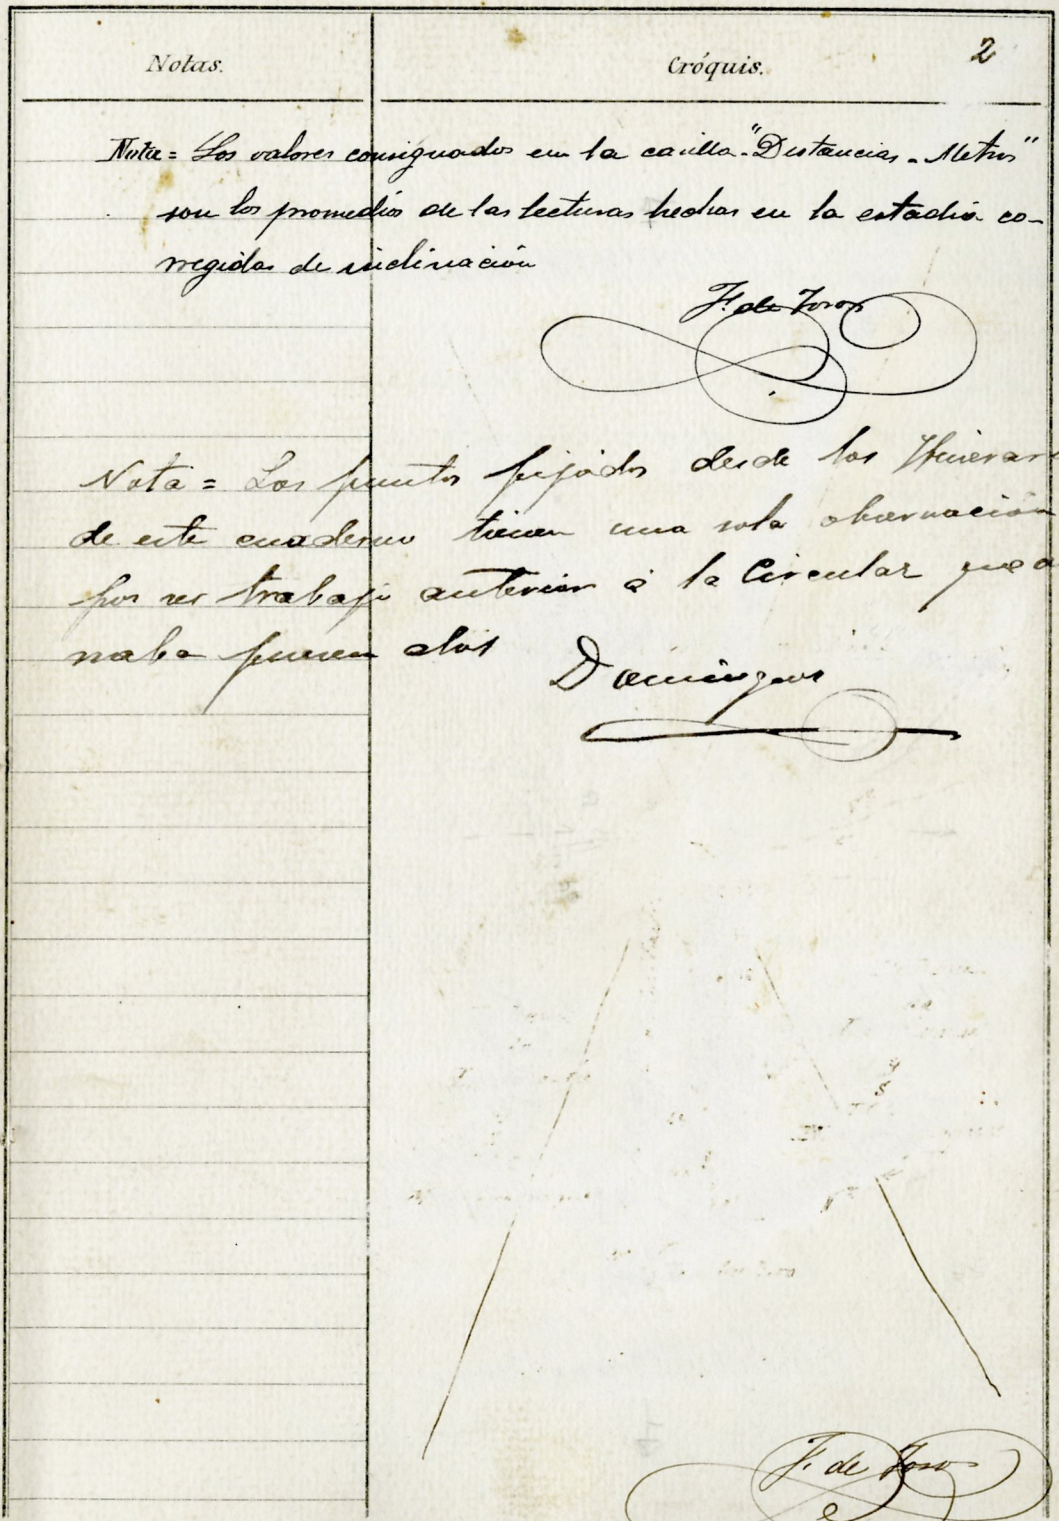 Notas.
Cróquis.
2
Nota = Los valores consignados en la casilla "Distancias - Metros"
son los promedios de las lecturas hechas en la estadia co-
rregidas de inclinación
F. de Toro
Nota = Los puntos fijados desde los Itinerar
de este cuaderno tienen una sola observación
por ser trabajo anterior á la Circular que o
naba fuesen dos
Dominguez
F. de Toro